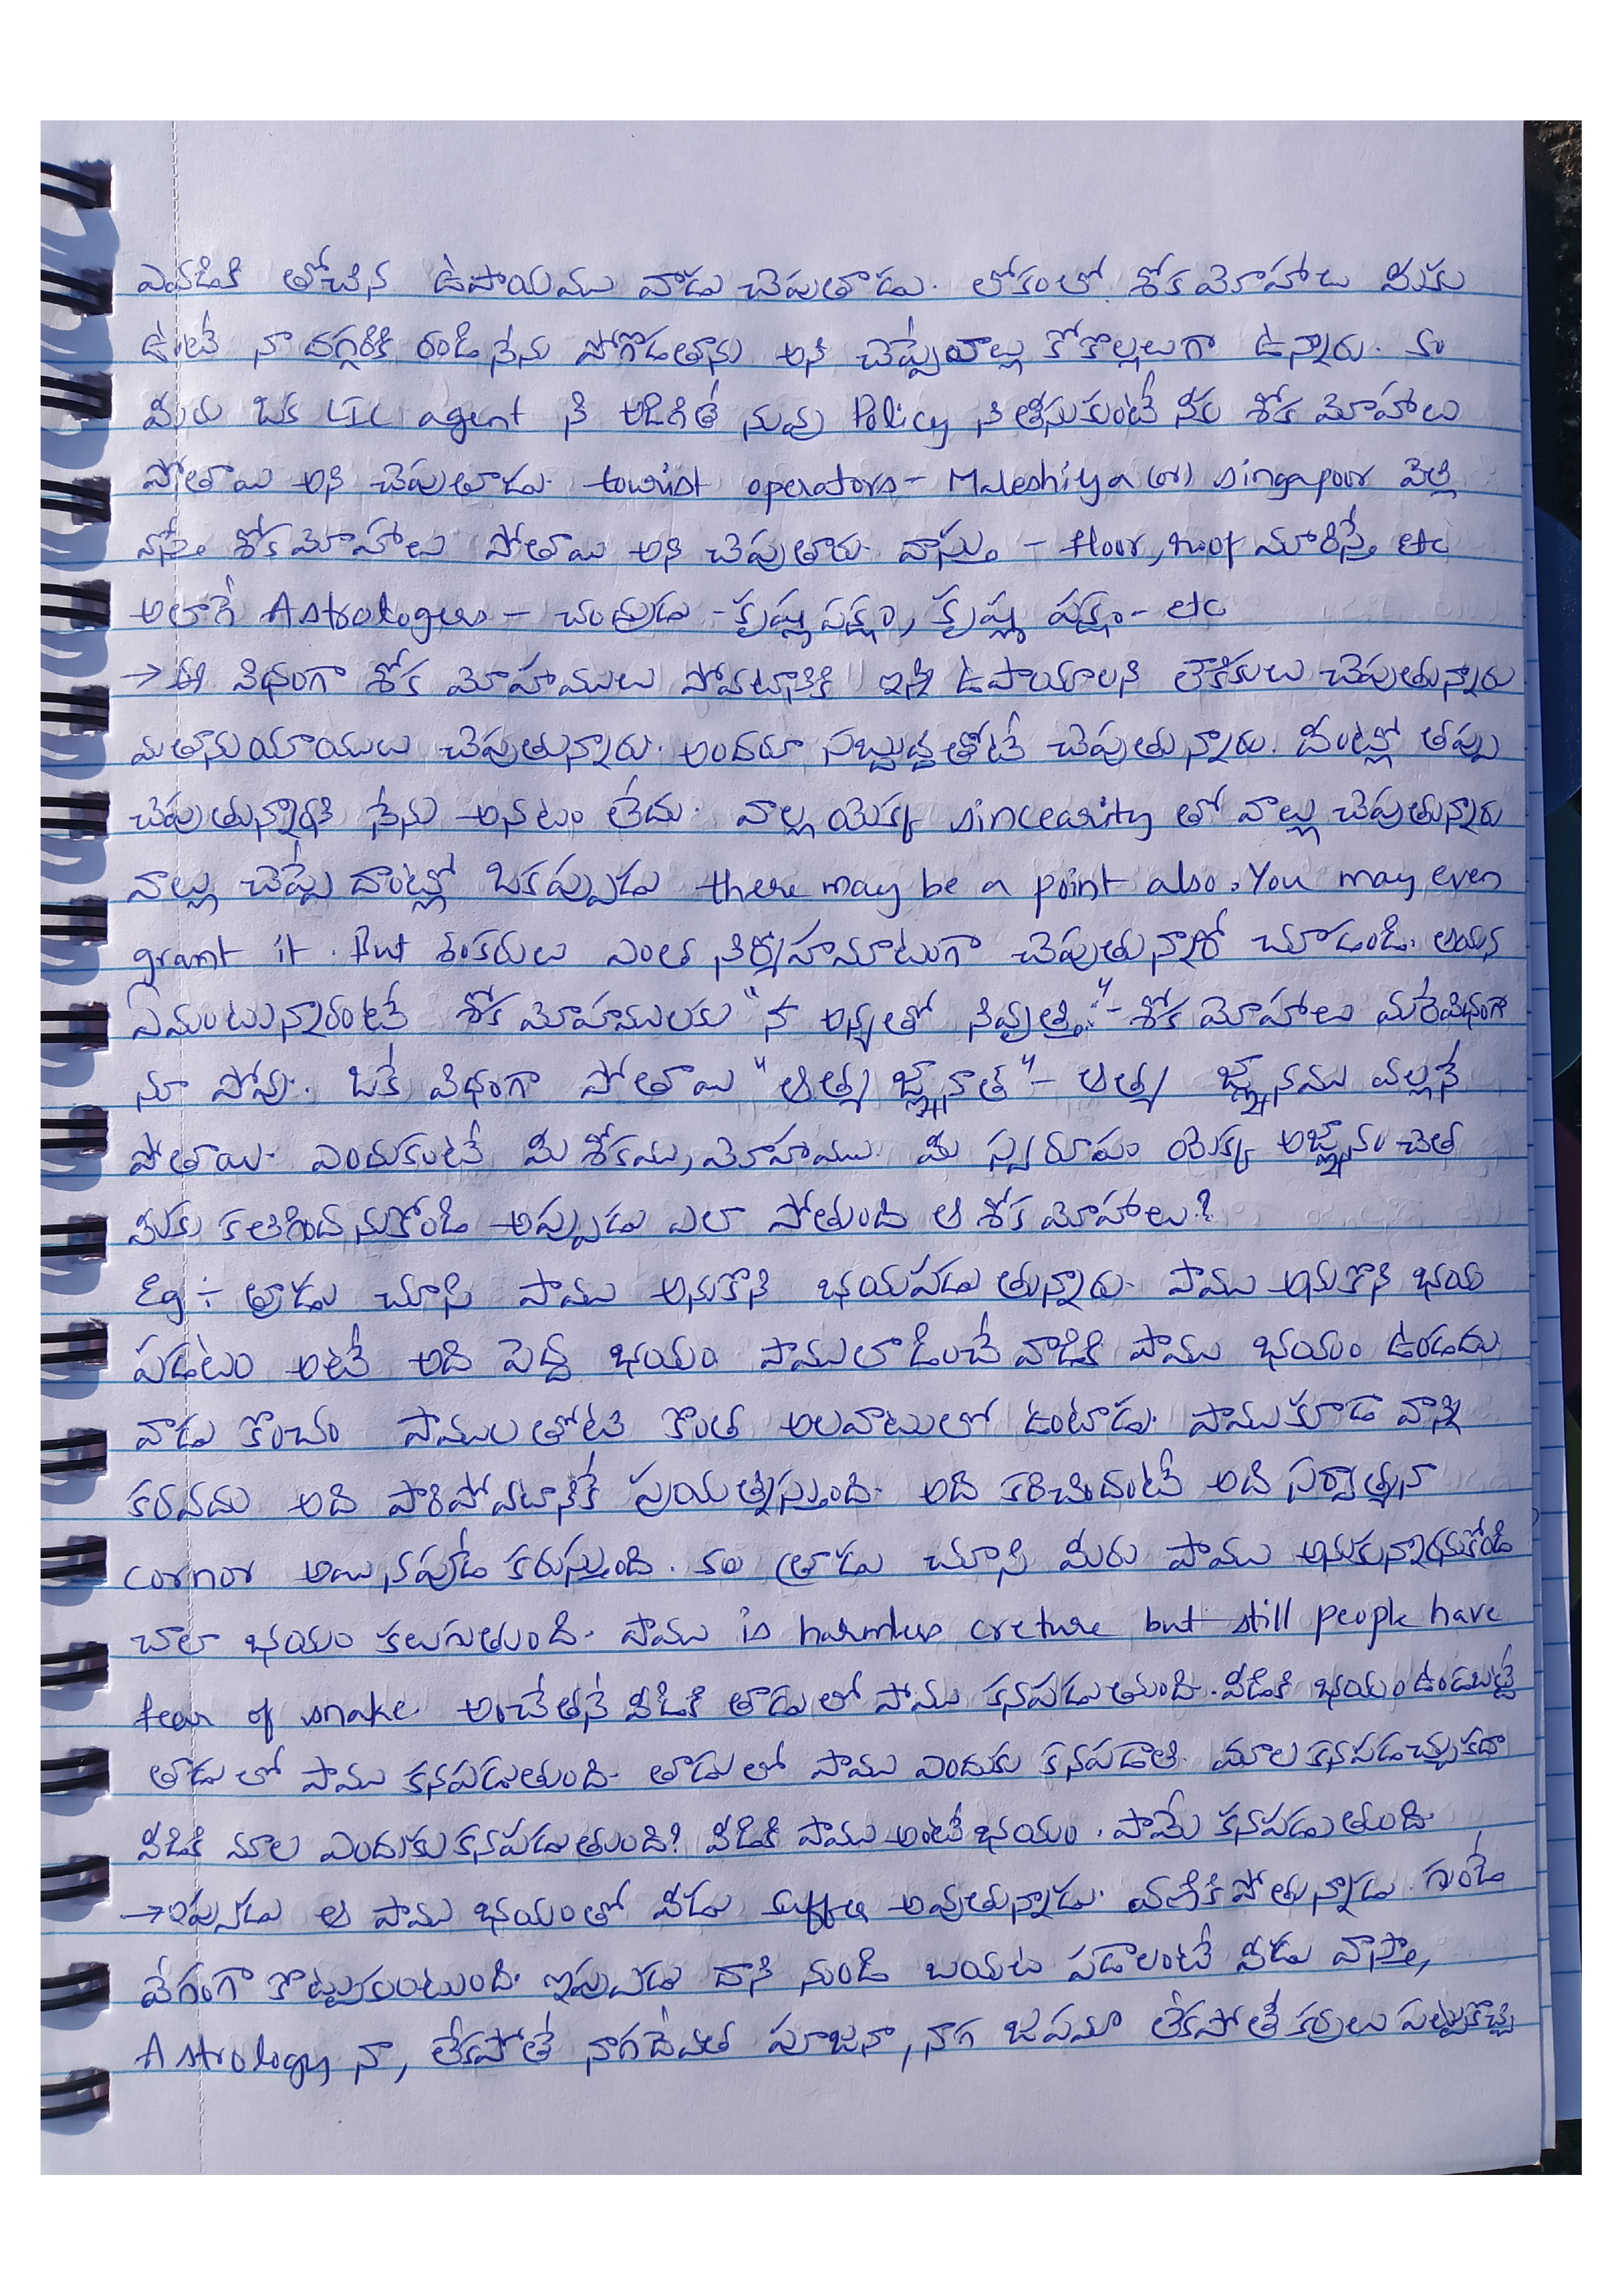 ఎవడికి తోచిన ఉపాయము వాడు చెపుతాడు. లోకంలో శోకమోహాలు మీకు
ఉంటే నా దగ్గరికి రండి నేను పోగొడతాను అని చెప్పేవాల్లు కోకొల్లలుగా ఉన్నారు.
మీరు ఒక LIC agent ని అడిగితే నువ్వు Policy ని తీసుకుంటే నీకు శోక మోహాలు
పోతాయి అని చెపుతాడు. tourist operators - Maleshiya (or) singapoor వెళ్లి
వస్తే శోకమోహాలు పోతాయి అని చెపుతారు. వాస్తు - floor, roof మారిస్తే etc
అలాగే Astrologers - చంద్రుడు - కృష్ణ పక్షం, కృష్ణ పక్షం - etc
→ ఈ విధంగా శోక మోహములు పోవటానికి ఇన్ని ఉపాయాలని లౌకికులు చెపుతున్నారు
మతానుయాయులు చెపుతున్నారు. అందరూ సబ్బుద్ధితోటే చెపుతున్నారు. దీంట్లో తప్పు
చెపుతున్నారని నేను అనటం లేదు. వాల్ల యొక్క sincearity తో వాల్లు చెపుతున్నారు
వాల్లు చెప్పే దాంట్లో ఒకప్పుడు there may be a point also. You may even
grant it. But శంకరులు ఎంత నిర్మోహమాటంగా చెపుతున్నారో చూడండి. ఆయన
ఏమంటున్నారంటే శోక మోహములకు "న అన్యతో నివృత్తిః" - శోక మోహాలు మరేవిధంగా
నూ పోవు. ఒకే విధంగా పోతాయి "ఆత్మ జ్ఞానాత్" - ఆత్మ జ్ఞానము వల్లనే
పోతాయి. ఎందుకంటే మీ శోకము, మోహము మీ స్వరూపం యొక్క అజ్ఞానం చేత
మీకు కలిగిందనుకోండి అప్పుడు ఎలా పోతుంది ఆ శోక మోహాలు?
Eg :- త్రాడు చూసి పాము అనుకొని భయపడుతున్నారు. పాము అనుకొని భయ
పడటం అంటే అది పెద్ద భయం పాములాడించే వాడికి పాము భయం ఉండదు
వాడు కొంచం పాములతోటి కొంత అలవాటులో ఉంటాడు. పాముకూడా వాన్ని
కరవదు అది పారిపోవటానికే ప్రయత్నిస్తుంది. అది కరిచిందంటే అది సర్వాత్మనా
cornor అయినపుడే కరుస్తుంది. త్రాడు చూసి మీరు పాము అనుకున్నారనుకోండి
చాలా భయం కలుగుతుంది. పాము is harmless creture but still people have
fear of snake అంచేతనే వీడికి తాడులో పాము కనపడుతుంది. వీడికి భయం ఉండబట్టే
తాడులో పాము కనపడుతుంది. తాడులో పాము ఎందుకు కనపడాలి. మాల కనపడచ్చుకదా
వీడికి మాల ఎందుకు కనపడుతుంది? వీడికి పాము అంటే భయం. పామే కనపడుతుంది.
→ ఇపుడు ఆ పాము భయంతో వీడు suffer అవుతున్నాడు. వణికి పోతున్నాడు. గుండె
వేగంగా కొట్టుకుంటుంది. ఇపుడు దాని నుండి బయట పడాలంటే వీడు వాస్తా,
Astrology నా, లేకపోతే నాగదేవత పూజనా, నాగ జపమా లేకపోతే కర్రలు పట్టుకొచ్చి